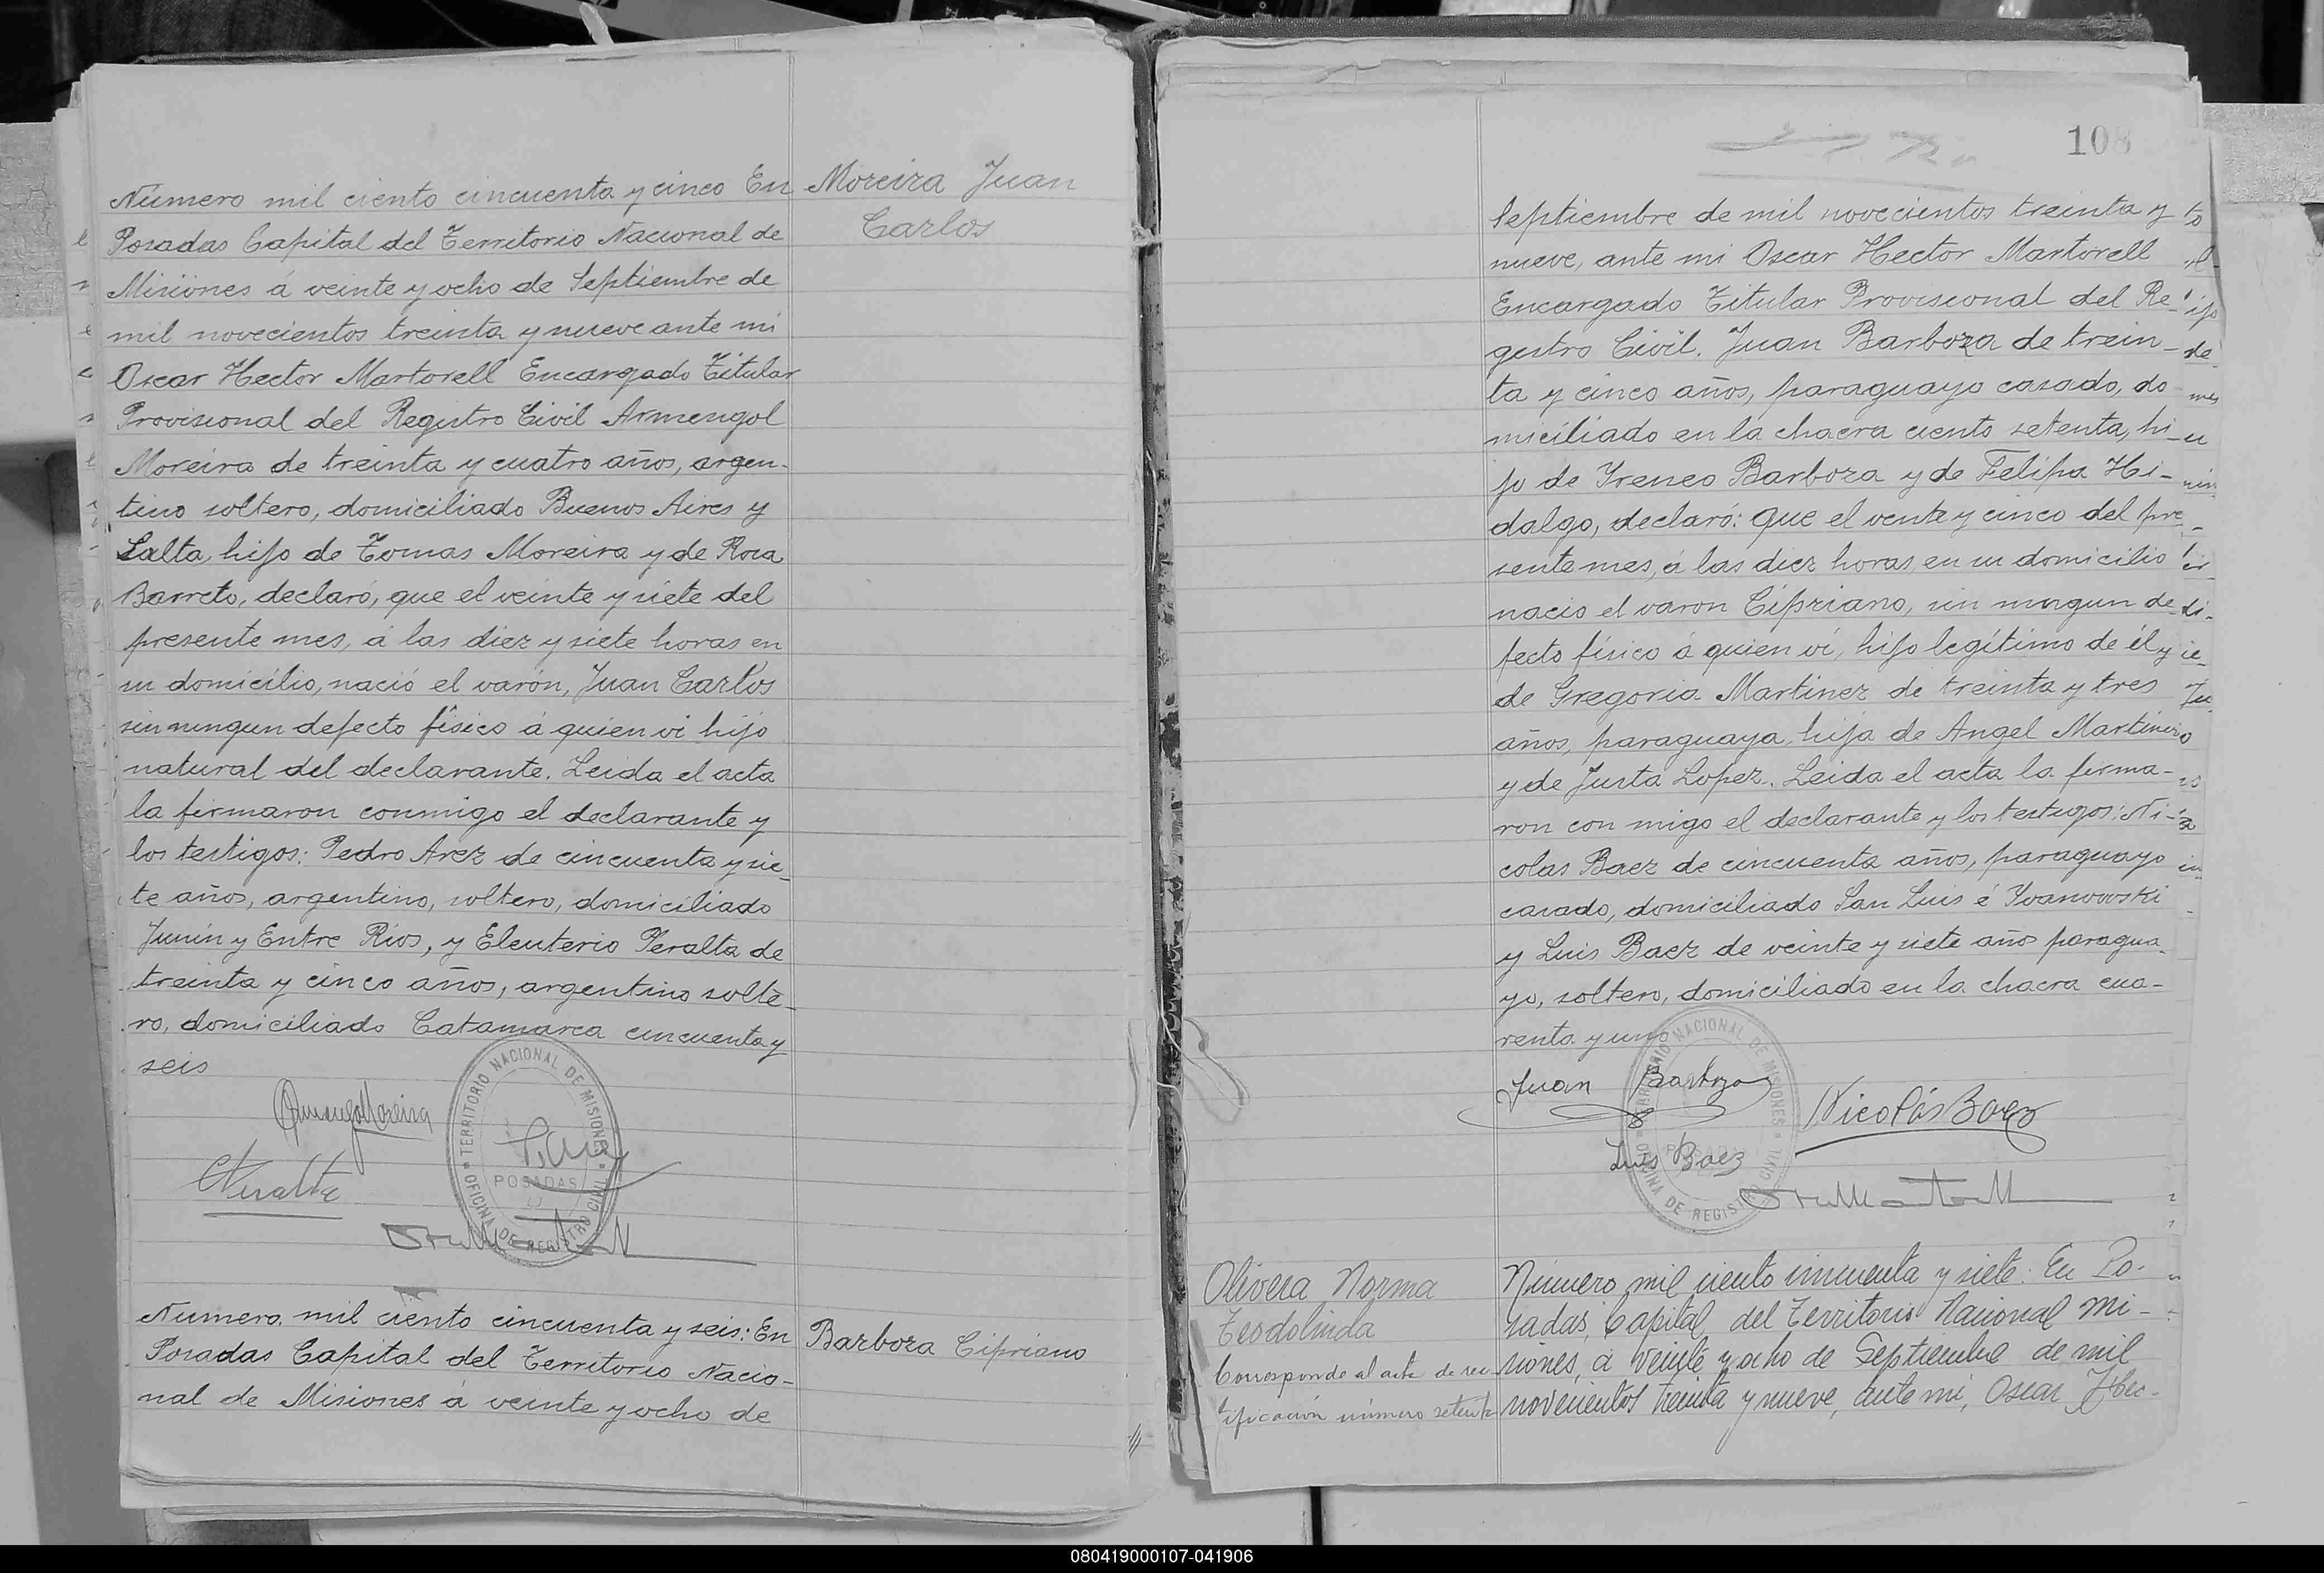 Número mil ciento cincuenta y cinco En
Posadas Capital del Territorio Nacional de
Misiones á veinte y ocho de Septiembre de
mil novecientos treinta y nueve ante mi
Oscar Hector Martorell Encargado Titular
Provisional del Registro Civil Armengol
Moreira de treinta y cuatro años, argen-
tino soltero, domiciliado Buenos Aires y
Salta, hijo de Tomas Moreira y de Rosa
Barreto, declaró, que el veinte y siete del
presente mes, á las diez y siete horas en
su domicilio, nació el varón, Juan Carlos
sin ningun defecto físico á quien vi hijo
natural del declarante. Leida el acta
la firmaron conmigo el declarante y
los testigos: Pedro Arez de cincuenta y sie-
te años, argentino, soltero, domiciliado
Junín y Entre Ríos, y Eleuterio Peralta de
treinta y cinco años, argentino solte-
ro, domiciliado Catamarca cincuenta y
seis
Moreira Juan
Carlos
TERRITORIO NACIONAL DE MISIONES
POSADAS
OFICINA DE REGISTRO CIVIL
Numero mil ciento cincuenta y seis: En
Posadas Capital del Territorio Nacio-
nal de Misiones á veinte y ocho de
Barboza Cipriano
108
Septiembre de mil novecientos treinta y
nueve, ante mi Oscar Hector Martorell
Encargado Titular Provisional del Re-
gistro Civil. Juan Barboza de trein-
ta y cinco años, paraguayo casado, do-
miciliado en la chacra ciento setenta, hi-
jo de Yreneo Barboza y de Felipa Hi-
dalgo, declaró: que el vente y cinco del pre-
sente mes, á las diez horas en su domicilio
nacio el varon Cipriano, sin ningun de-
fecto físico á quien vi, hijo legítimo de él y
de Gregoria Martinez de treinta y tres
años, paraguaya, hija de Angel Martinez
y de Justa Lopez. Leida el acta la firma-
ron con migo el declarante y los testigos: Ni-
colas Baez de cincuenta años, paraguayo
casado, domiciliado San Luis é Yvanowski
y Luis Baez de veinte y siete año paragua-
yo, soltero, domiciliado en la chacra cua-
renta y uno
TERRITORIO NACIONAL DE MISIONES
OFICINA DE REGISTRO CIVIL
Juan Barboza
Nicolás Baez
Luis Baez
Olivera Norma
Teodolinda
Corresponde al acta de rec
tificación número setenta
Número mil ciento cincuenta y siete: En Po-
sadas, Capital del Territorio Nacional Mi-
siones, á veinte y ocho de Septiembre de mil
novecientos treinta y nueve, ante mi, Oscar Hec-
080419000107-041906